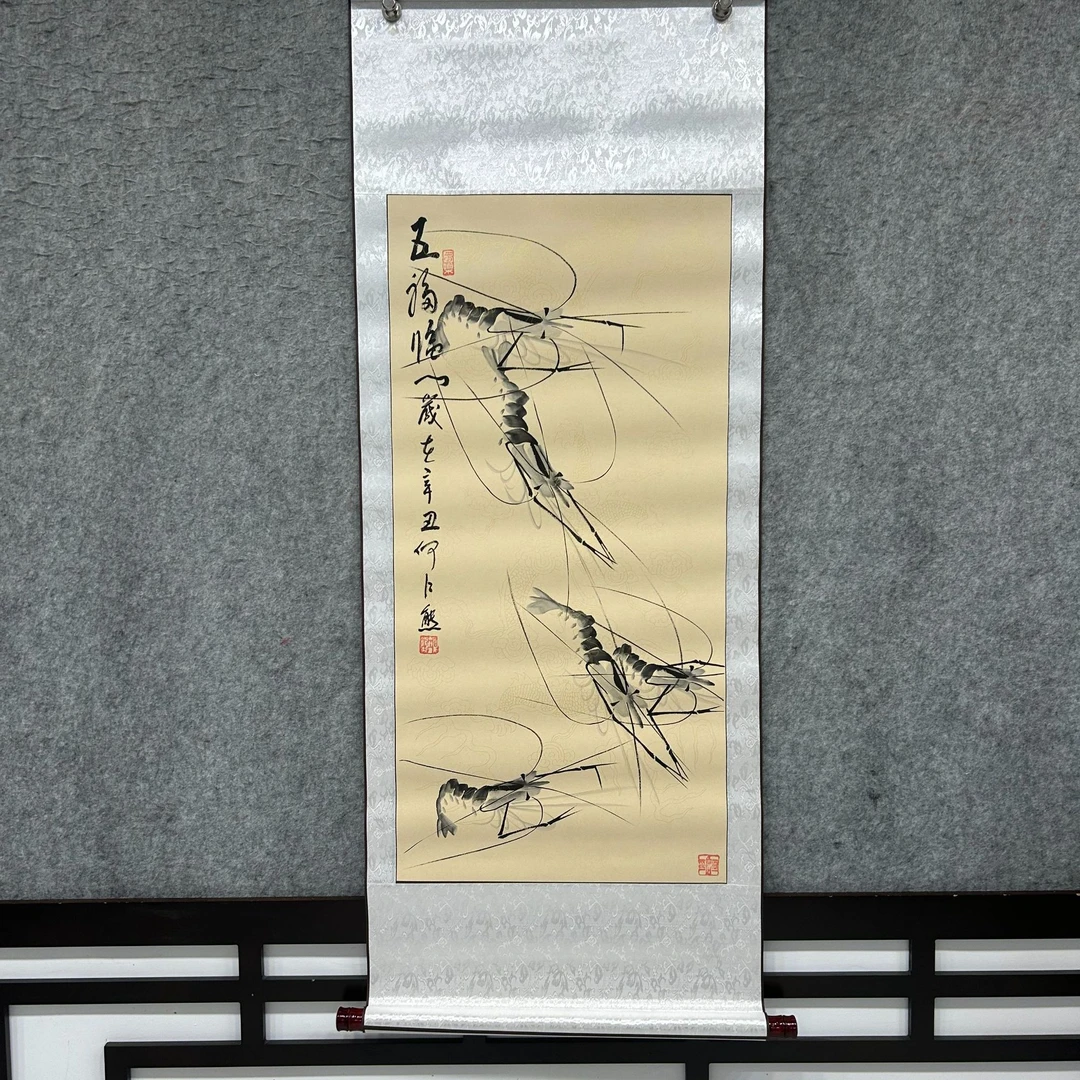 五福临门岁在辛丑何日熊